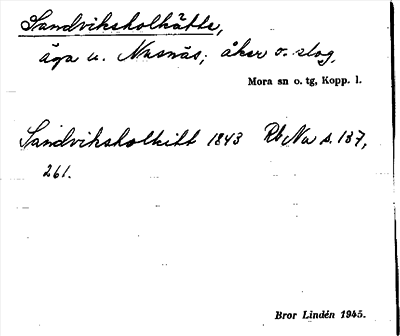 Sandviksholkätte,
äga u. Nusnäs; åker o. slog.
Mora sn o. tg, Kopp. l.
Sandviksholkitt 1843 Rb Na s. 137,
261.
Bror Lindén 1945.